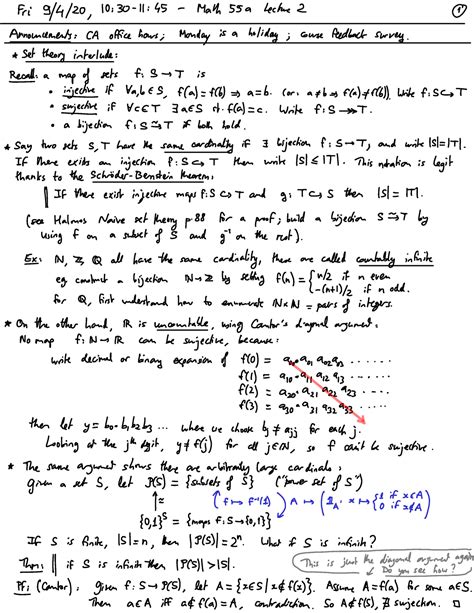 Fri 9/4/20, 10:30-11:45 - Math 55a Lecture 2 ①
Announcements: CA office hours; Monday is a holiday; course feedback survey.
* Set theory interlude:
Recall: a map of sets f: S → T is
• injective if ∀a,b∈S, f(a)=f(b) ⇒ a=b. (or: a≠b ⇒ f(a)≠f(b)). Write f: S↪T
• surjective if ∀c∈T ∃a∈S st. f(a)=c. Write f: S↠T.
• a bijection f: S≅T if both hold.
* Say two sets S,T have the same cardinality if ∃ bijection f: S→T, and write |S|=|T|.
If there exists an injection f: S↪T then write |S|≤|T|. This notation is legit
thanks to the Schröder-Bernstein theorem:
‖ If there exist injective maps f: S↪T and g: T↪S then |S|=|T|.
(see Halmos Naive set theory p.88 for a proof; build a bijection S≅T by
using f on a subset of S and g⁻¹ on the rest).
Ex: ℕ, ℤ, ℚ all have the same cardinality, these are called countably infinite
eg. construct a bijection ℕ→ℤ by setting f(n) = { n/2 if n even
-(n+1)/2 if n odd.
for ℚ, first understand how to enumerate ℕ×ℕ = pairs of integers.
* On the other hand, ℝ is uncountable, using Cantor's diagonal argument:
No map f: ℕ→ℝ can be surjective, because:
write decimal or binary expansion of f(0) = a₀₀.a₀₁ a₀₂ a₀₃ ......
f(1) = a₁₀.a₁₁ a₁₂ a₁₃ ......
f(2) = a₂₀.a₂₁ a₂₂ a₂₃ ......
f(3) = a₃₀.a₃₁ a₃₂ a₃₃ ......
then let y = b₀.b₁b₂b₃ ... where we choose bⱼ ≠ aⱼⱼ for each j.
Looking at the jᵗʰ digit, y≠f(j) for all j∈ℕ, so f can't be surjective.
* The same argument shows there are arbitrarily large cardinals:
given a set S, let P(S) = {subsets of S} ("power set of S")
↑≃ ( f ↦ f⁻¹(1) ) A ↦ (1_A: x ↦ {1 if x∈A
0 if x∉A )
{0,1}^S = {maps f: S→{0,1}}
If S is finite, |S|=n, then |P(S)|=2ⁿ. What if S is infinite?
Thm: ‖ if S is infinite then |P(S)|>|S|.
This is just the diagonal argument again
Do you see how?
Pf: (Cantor): given f: S→P(S), let A = {x∈S | x∉f(x)}. Assume A=f(a) for some a∈S
Then a∈A iff a∉f(a)=A, contradiction. So A∉f(S), ∄ surjection. □